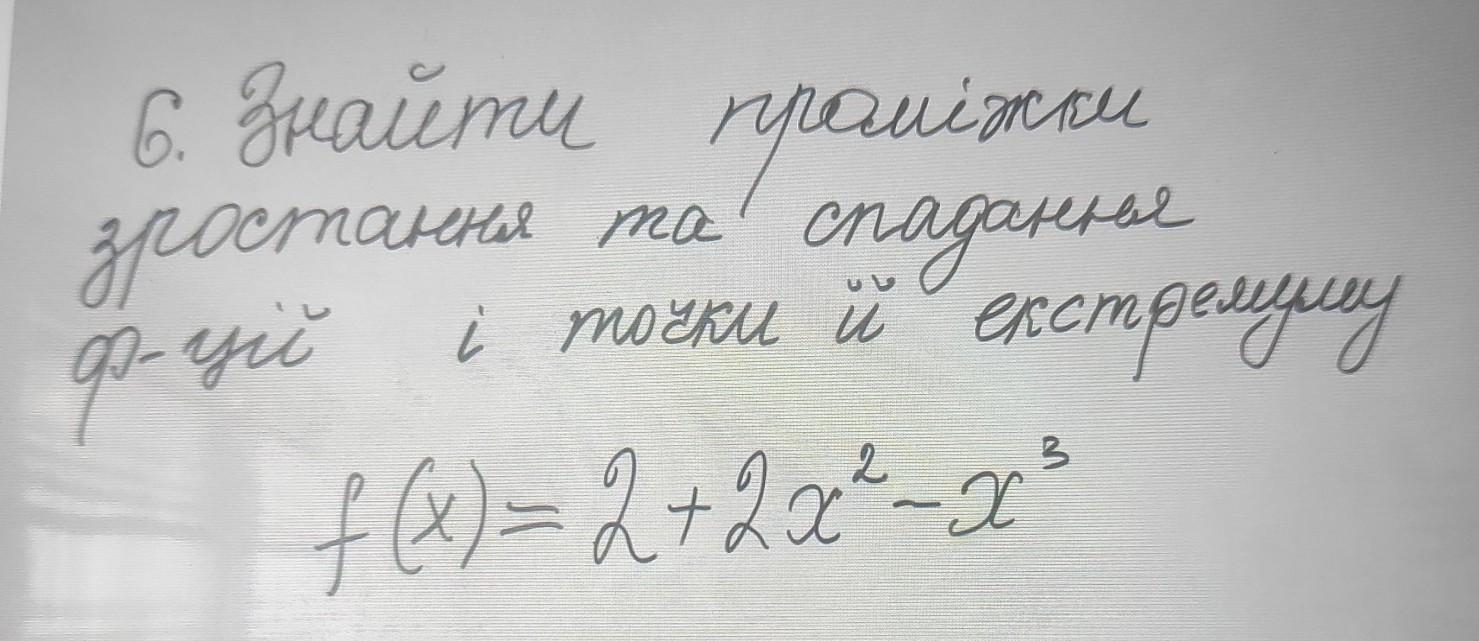 6. Знайти проміжки
зростання та спадання
ф-ції і точки її екстремуму
f(x) = 2 + 2x² - x³